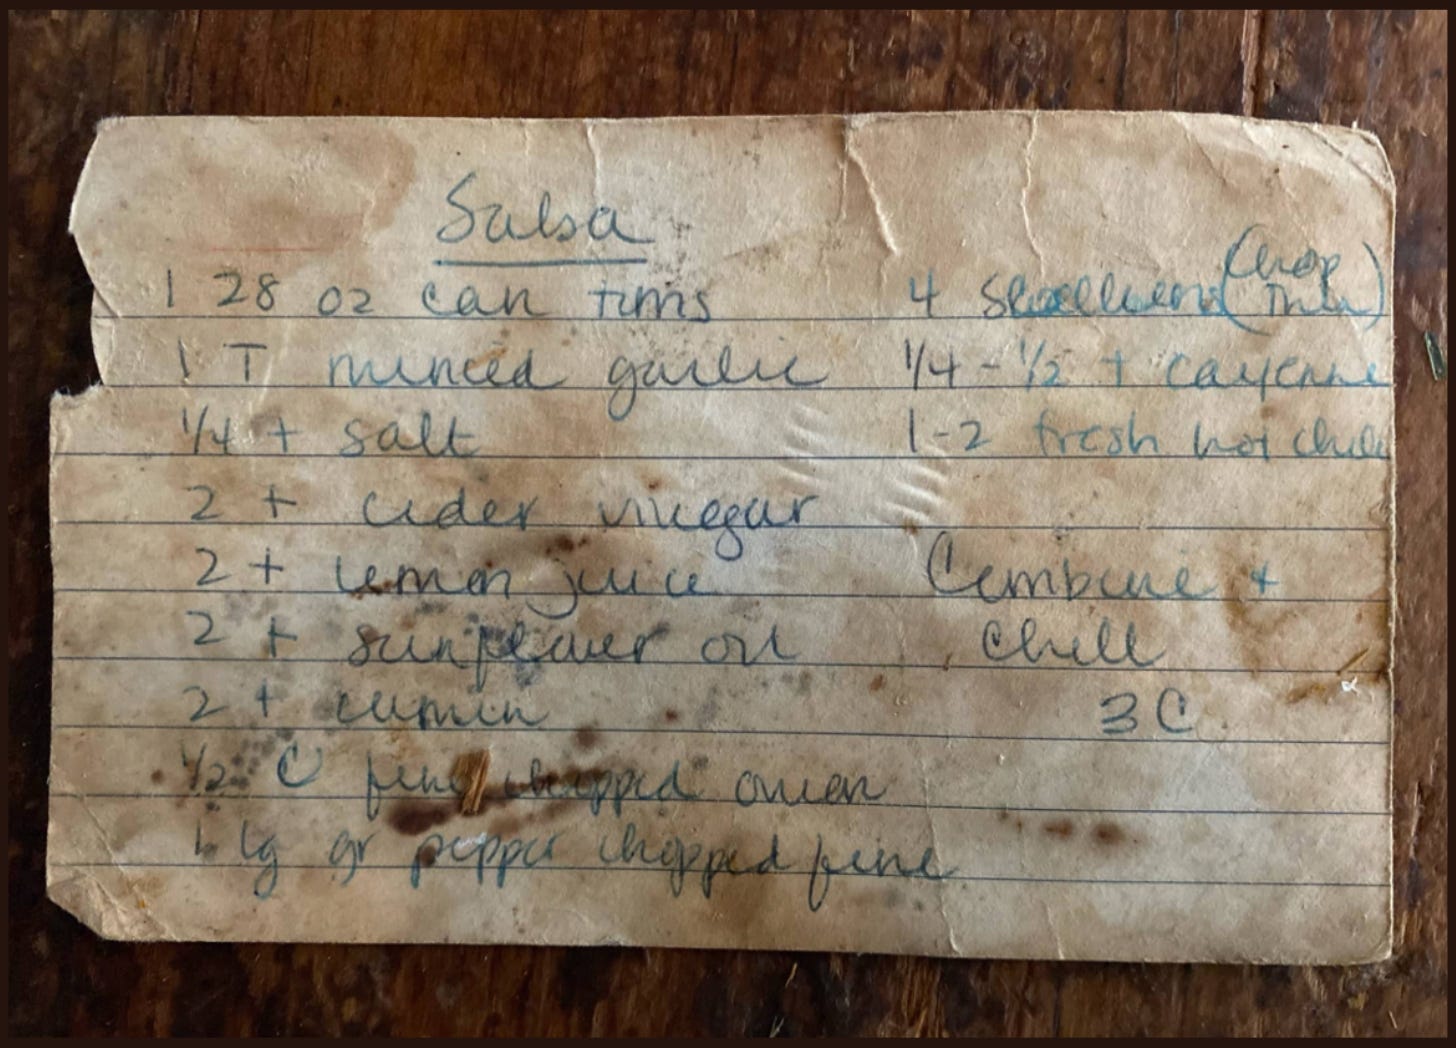 Salsa
1 28 oz can toms
1 T minced garlic
1/4 t salt
2 t cider vinegar
2 t lemon juice
2 t sunflower oil
2 t cumin
1/2 C fine chopped onion
1 lg gr pepper chopped fine
4 Scallions (Chop thin)
1/4 - 1/2 t cayenne
1-2 fresh hot
Combine +
Chill
3 C